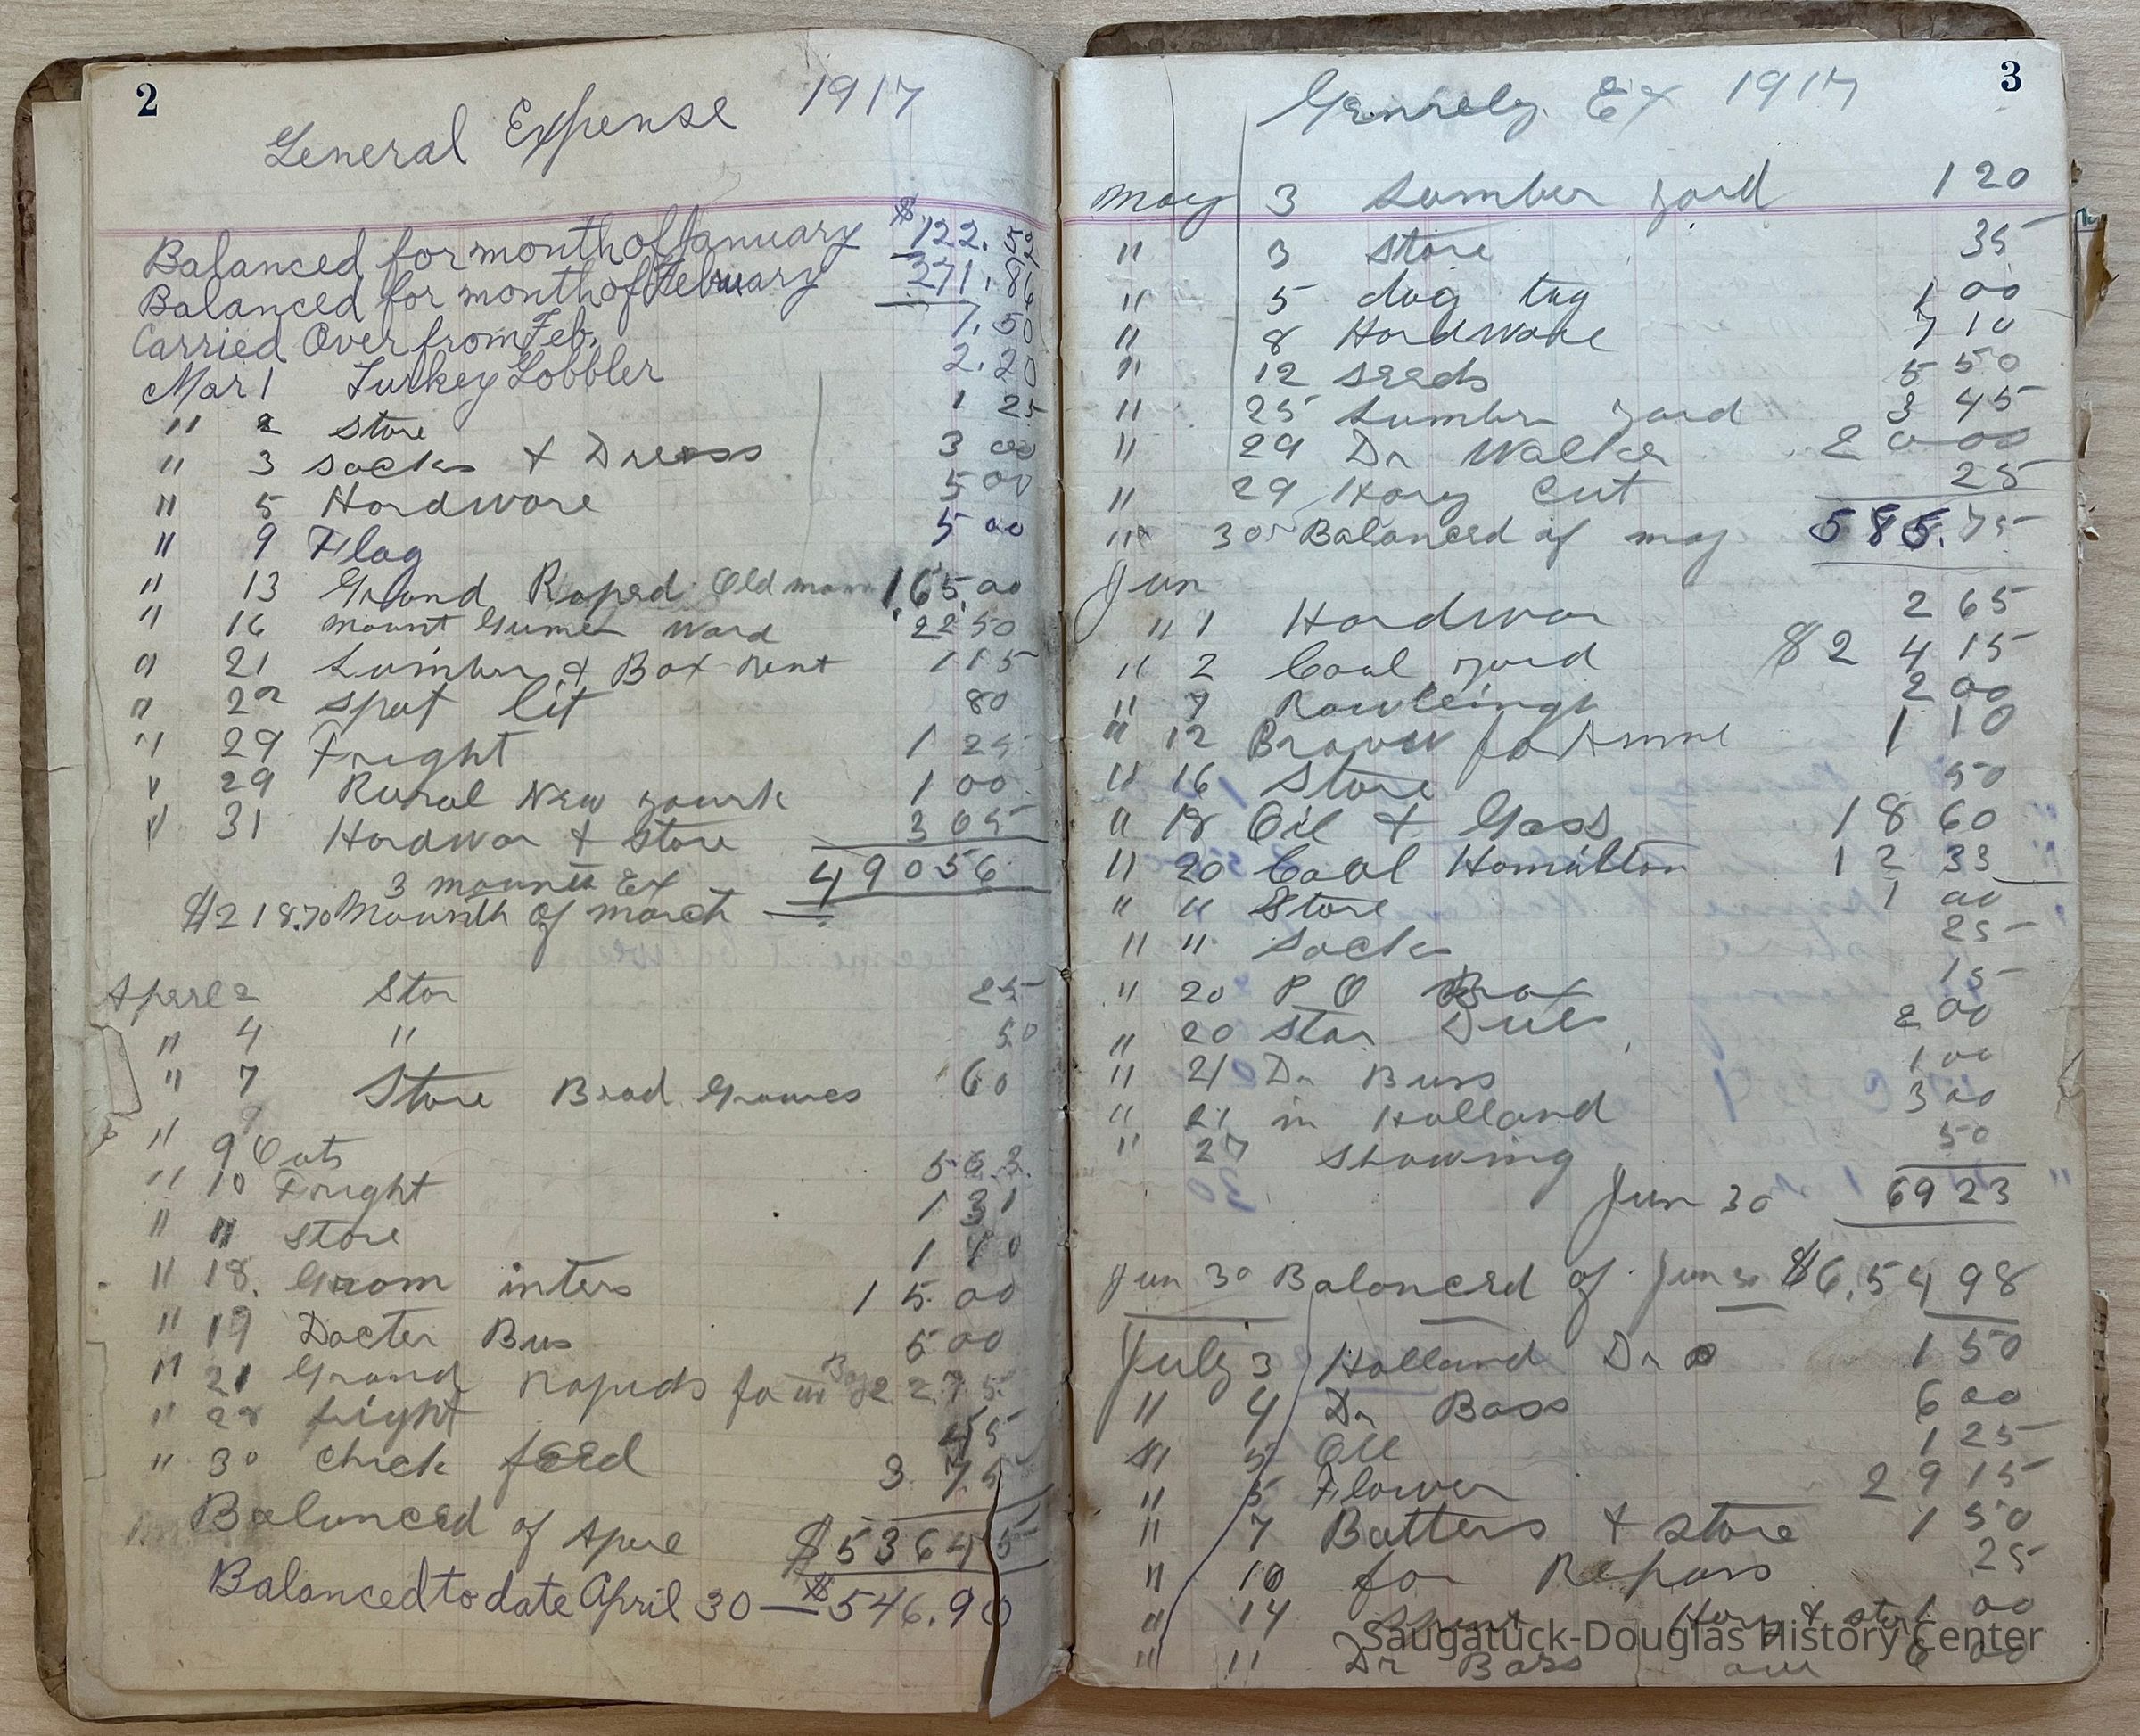 2
General Expense 1917
Balanced for month of January $122.
Balanced for month of February 271.86
Carried Over from Feb. 7.50
Mar 1 Turkey Gobbler 2.20
" 2 Store 1 25
" 3 socks + Dress 3 00
" 5 Hardware 5 00
" 9 Flag 5 00
" 13 Grand Raped Old man 165.00
" 16 mount Gumer Ward 22 50
" 21 Lumber & Box Rent 1 15
" 22 spot lit 80
" 29 Fright 1 25
" 29 Rural New yourk 1 00
" 31 Hardwar + Store 3 05
3 mounts Ex 490 56
$218.70 Mounth of march
Aperl 2 Stor 25
" 4 " 50
" 7 Store Brad Graves 60
" 9 Oats 5 63
" 10 Fright 1 31
" " store 1 10
" 18. Groom inters 15 00
" 19 Docter Bus 5 00
" 21 Grand Rapids 22.75
" 28 fright 45
" 30 chick feed 3 75
Balanced of Aperl $536 45
Balanced to date April 30 — $546.90
3
Genrely Ex 1917
may 3 Lumber yard 1 20
" 3 store 35
" 5 dog tag 1 00
" 8 Hardware 7 10
" 12 seeds 5 50
" 25 Lumbr yard 3 45
" 29 Dr Walker 20 00
" 29 Hary cut 25
" 30 Balanced of may 585.75
Jun
" 1 Hardwar 2 65
" 2 Coal yard $24 15
" 7 Rawleingh 2 00
" 12 1 10
" 16 Store 50
" 18 Oil + Gass 18 60
" 20 Coal Hamilton 12 33
" " Store 1 00
" " Socks 25
" 20 P O Box 15
" 20 star Dues 2 00
" 21 Dr Buss 1 00
" 21 in Holland 3 00
" 27 Showing 50
Jun 30 69 23
Jun 30 Balanced of Jun 30 $6,54 98
July 3 Holland Dr 1 50
" 4 Dr Bass 6 00
" 5 Oil 1 25
" 5 Flower 29 15
" 7 Batters + store 1 50
" 10 for Repars 25
" 14 Hary & stor 1 00
" 11 Dr Bass 6 00
Saugatuck-Douglas History Center